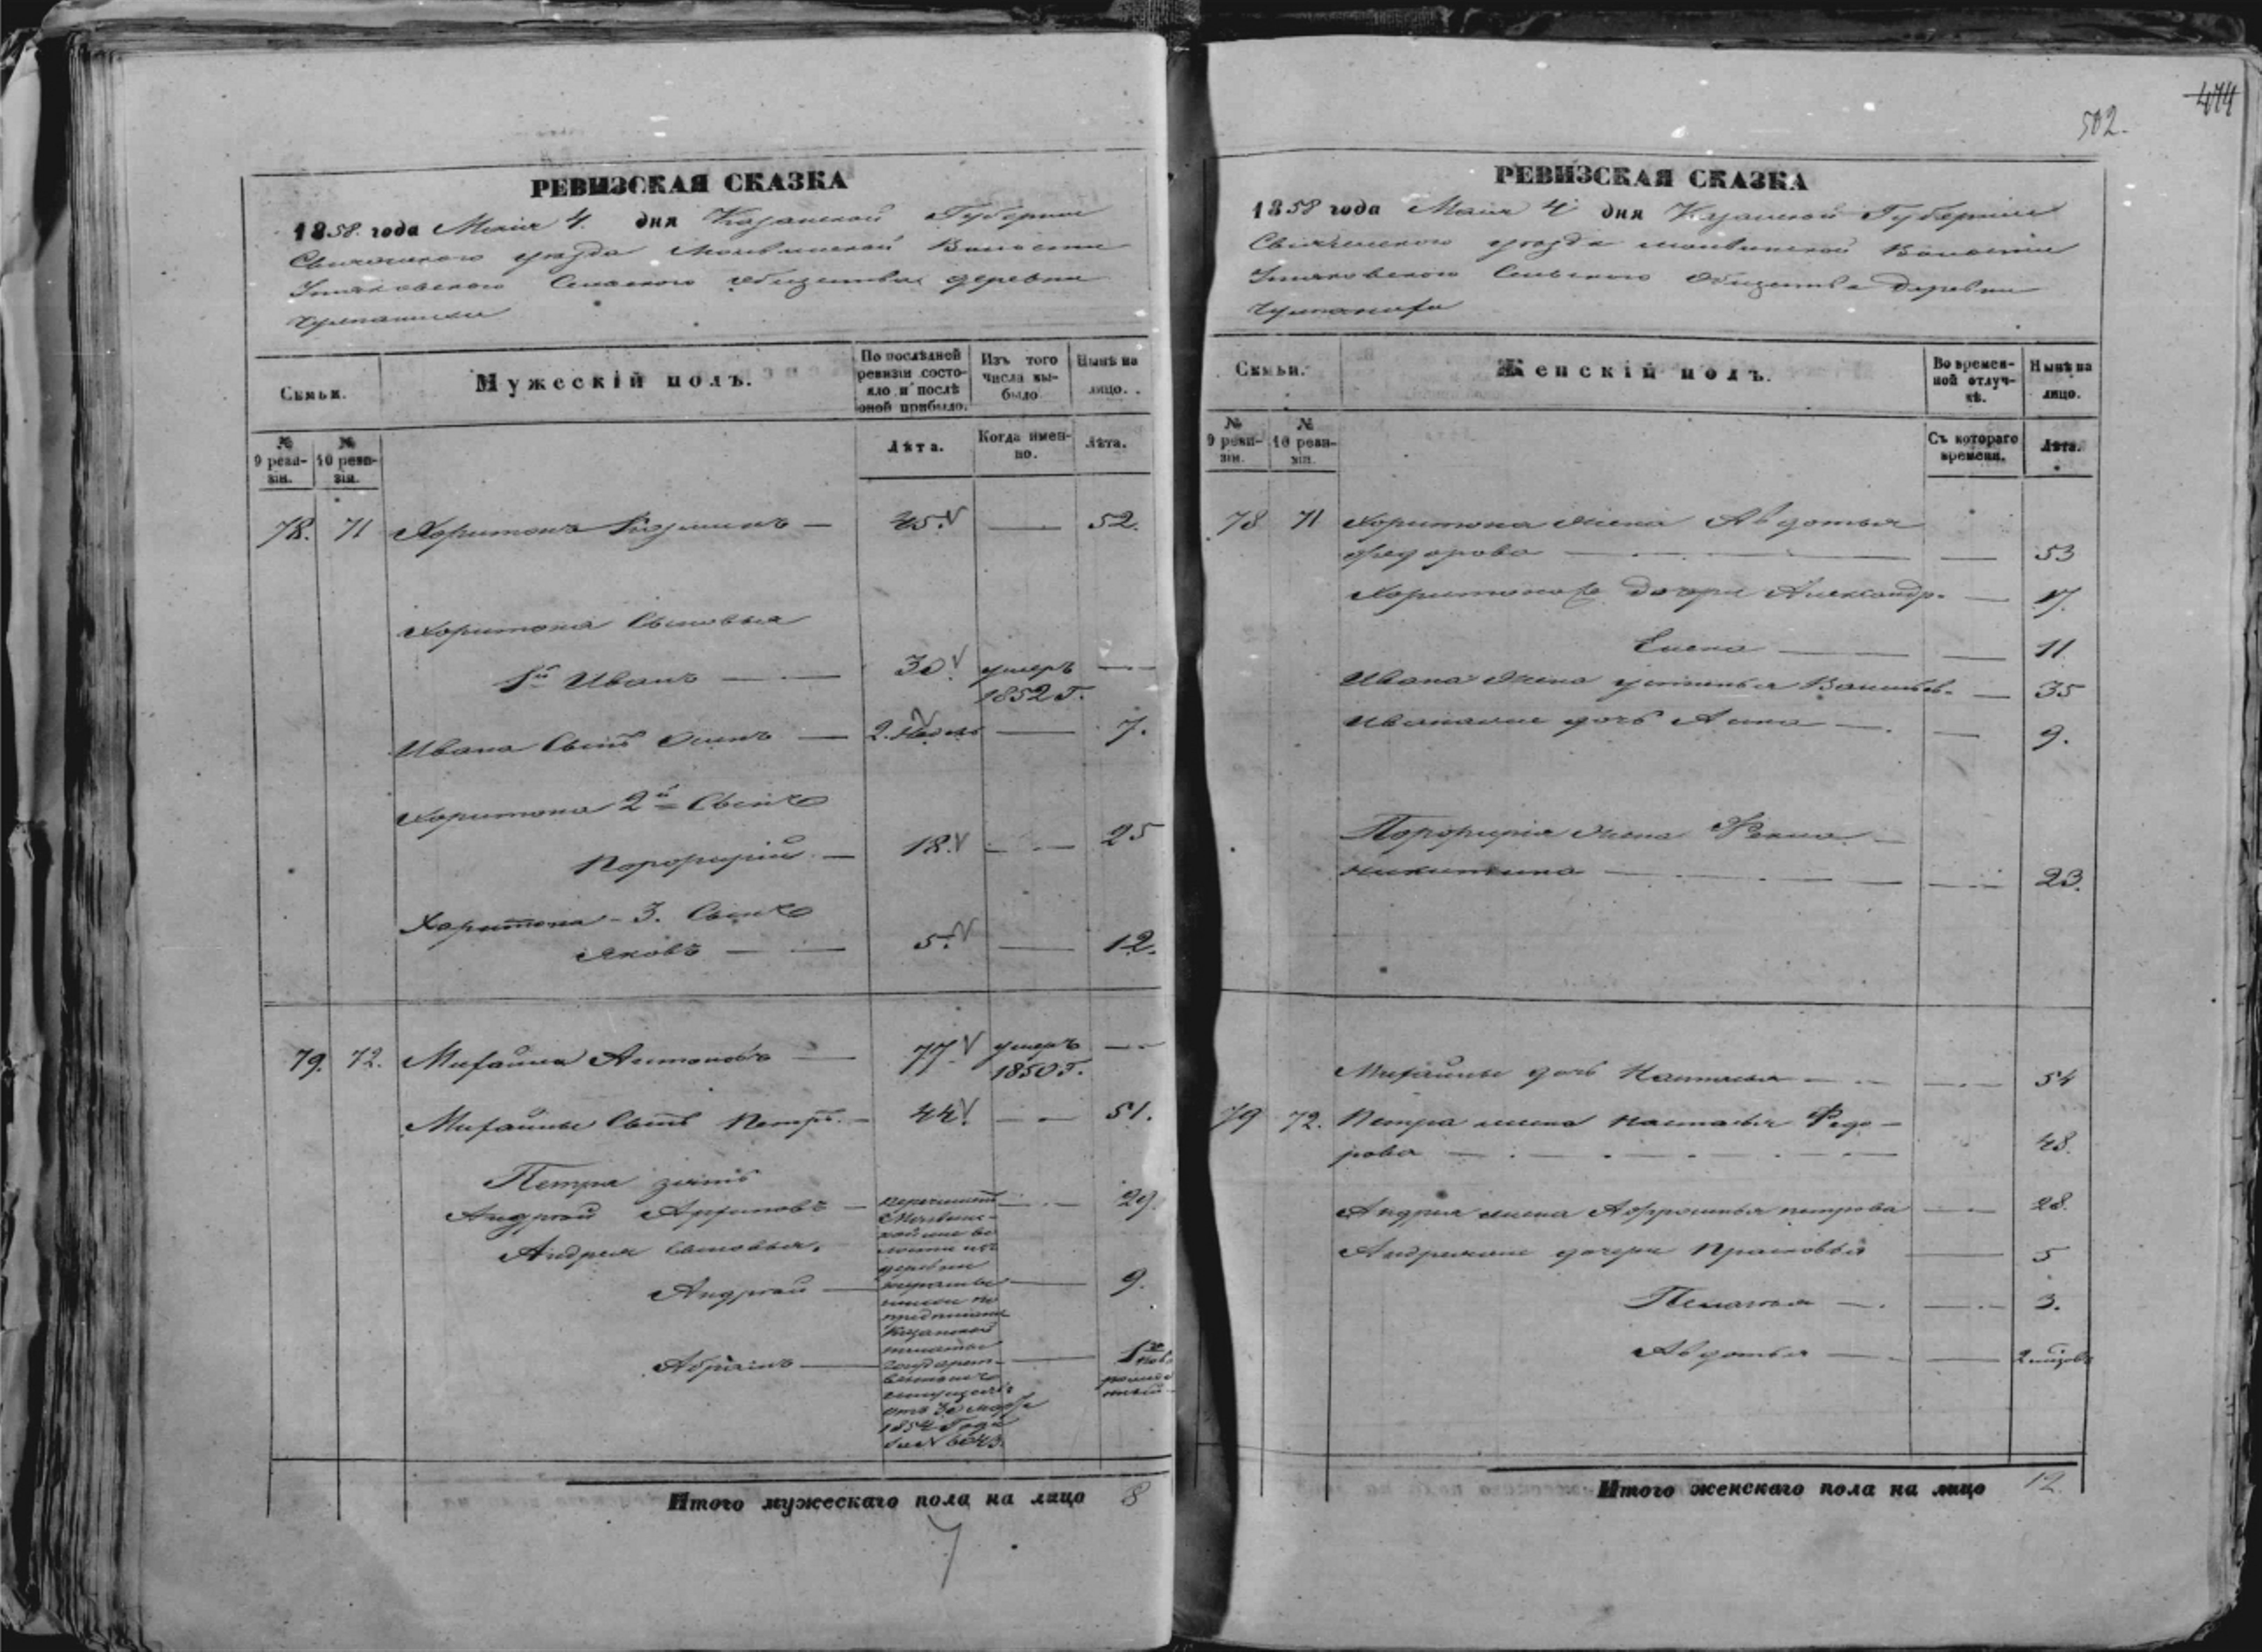 474
502.
РЕВИЗСКАЯ СКАЗКА
1858. года Маія 4. дня Казанской Губерніи
Свіяжскаго уѣзда Молвинской Волости
Утяковскаго Сельскаго общества деревни
Семьи.
Мужескій полъ.
По послѣдней ревизіи состояло и послѣ оной прибыло.
Изъ того числа выбыло.
Нынѣ на лицо.
№ 9 ревизіи.
№ 10 ревизіи.
Лѣта.
Когда именно.
Лѣта.
78. 71 Харитонъ Кузминъ — 45. — 52.
Харитона Сыновья
1й Иванъ — 30. умеръ —
1852 г.
Ивана Сынъ — 2. недель — 7.
Харитона 2й Сынъ
Порфирий — 18. — 25
Харитона - 3. Сынъ
Яковъ — 5. — 12.
79. 72. Михайла Антоновъ — 77. умеръ —
1850 г.
Михайлы Сынъ Петръ. — 44. — 51.
Петра зять
Андрей — 29.
Андрея Сыновья.
Андрей — 9.
— 1
перечисленъ
деревни
Казанской
палаты
имуществъ
отъ 30 марта
1854 Года
за № 6043.
Итого мужескаго пола на лицо 8
РЕВИЗСКАЯ СКАЗКА
1858 года Маія 4 дня Казанской Губерніи
Свіяжскаго уѣзда молвинской Волости
Утяковскаго Сельскаго Общества Деревни
Семьи.
Женскій полъ.
Во временной отлучкѣ.
Нынѣ на лицо.
№ 9 ревизіи.
№ 10 ревизіи.
Съ котораго времени.
Лѣта.
78 71 Харитона жена Авдотья
Федорова — 53
Харитоновы дочери Александр. — 17.
Елена — 11
Ивана жена устинья Васильев. — 35
Ивановы дочь Анна — 9.
Порфирія жена Фекла
никитина — 23.
Михайлы дочь Настасья — 54
79 72. Петра жена Настасья Федо-
рова — 48.
Андрея жена Афросинья петрова — 28.
Андреевы дочери Прасковья — 5
Пелагея — 3.
Авдотья — 2
Итого женскаго пола на лицо 12.